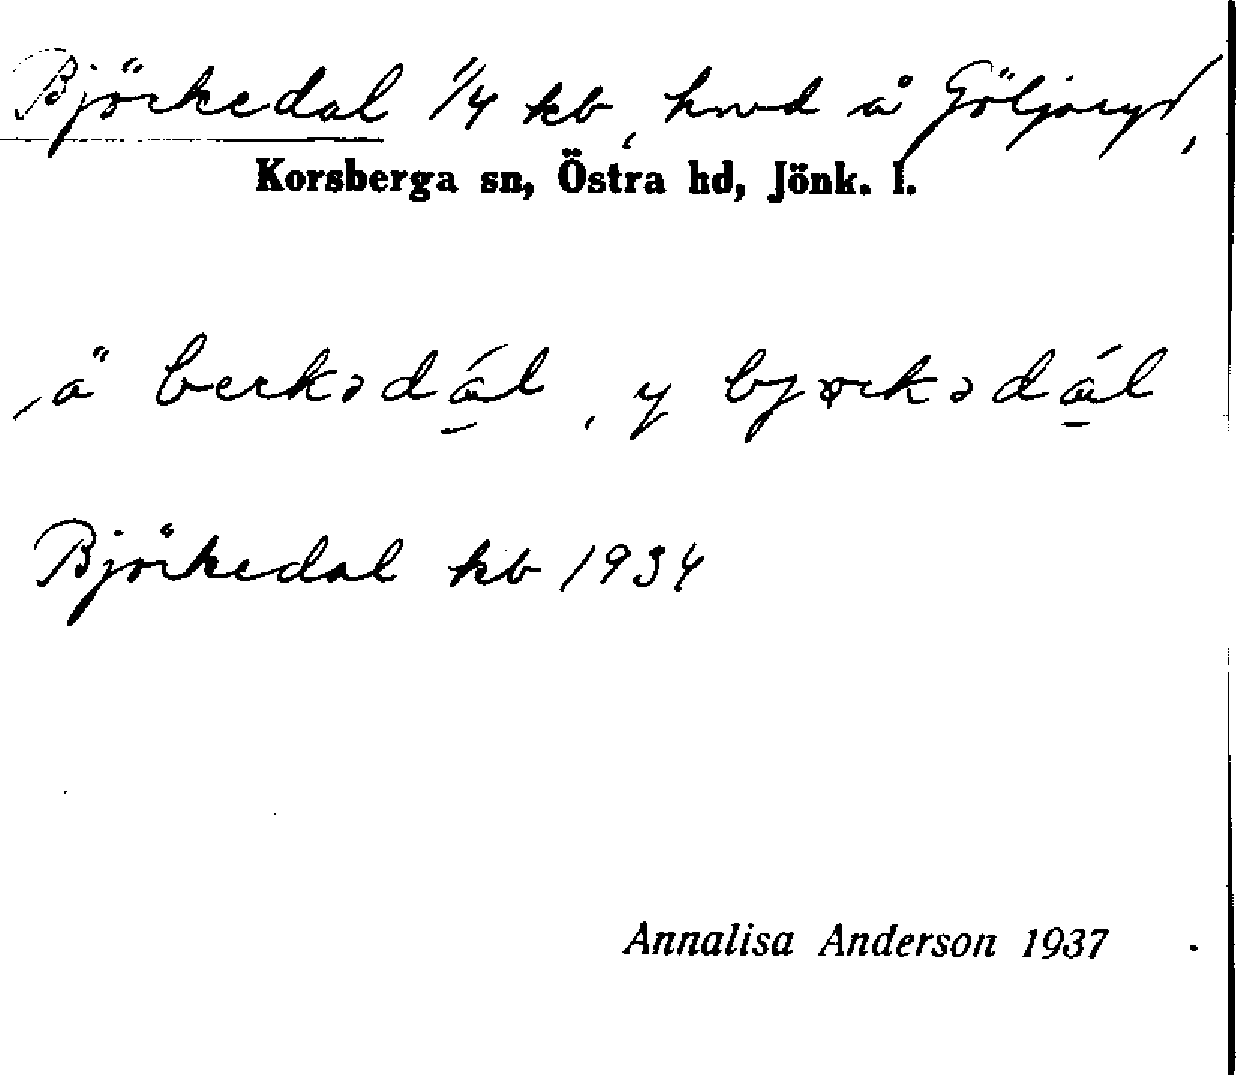 Björkedal 1/4 kb, hmd å Göljaryd,
Korsberga sn, Östra hd, Jönk. l.
,ä berkədál, y bjørkədál
Björkedal kb 1934
Annalisa Anderson 1937